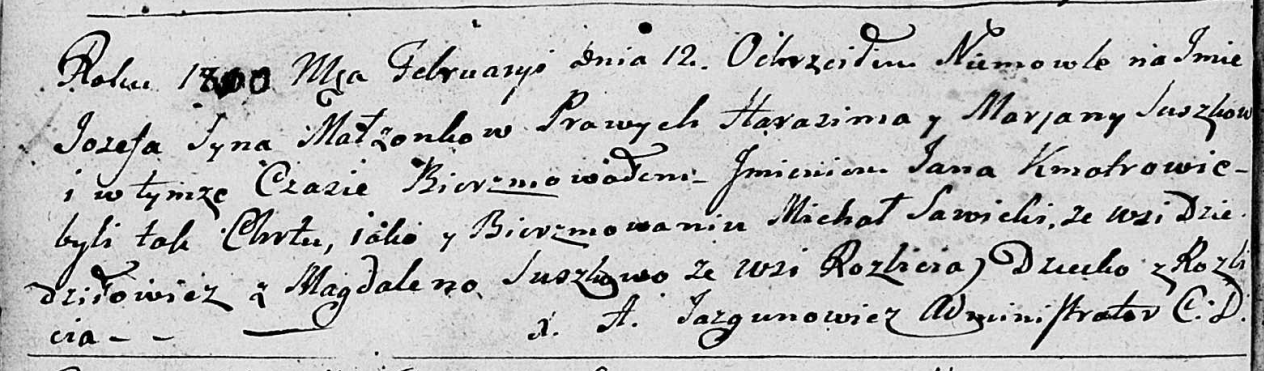 Roku 1800 Mca Februaryi dnia 12. Ochrzciłem Niemowle na Imie
Jozefa Syna Małżonkow Prawych Harasima y Marjany Suszkow
i w tymże Czasie Bierzmowałem Imieniem Jana Kmotrowie-
byli tak Chrtu, iako y Bierzmowaniu Michał Sawicki, ze wsi Dzie
dziłowicz z Magdaleno Suszkowo ze wsi Rozlicia) Dziecko z Rozli
cia - -
x. A. Jazgunowicz Administrator C. D.